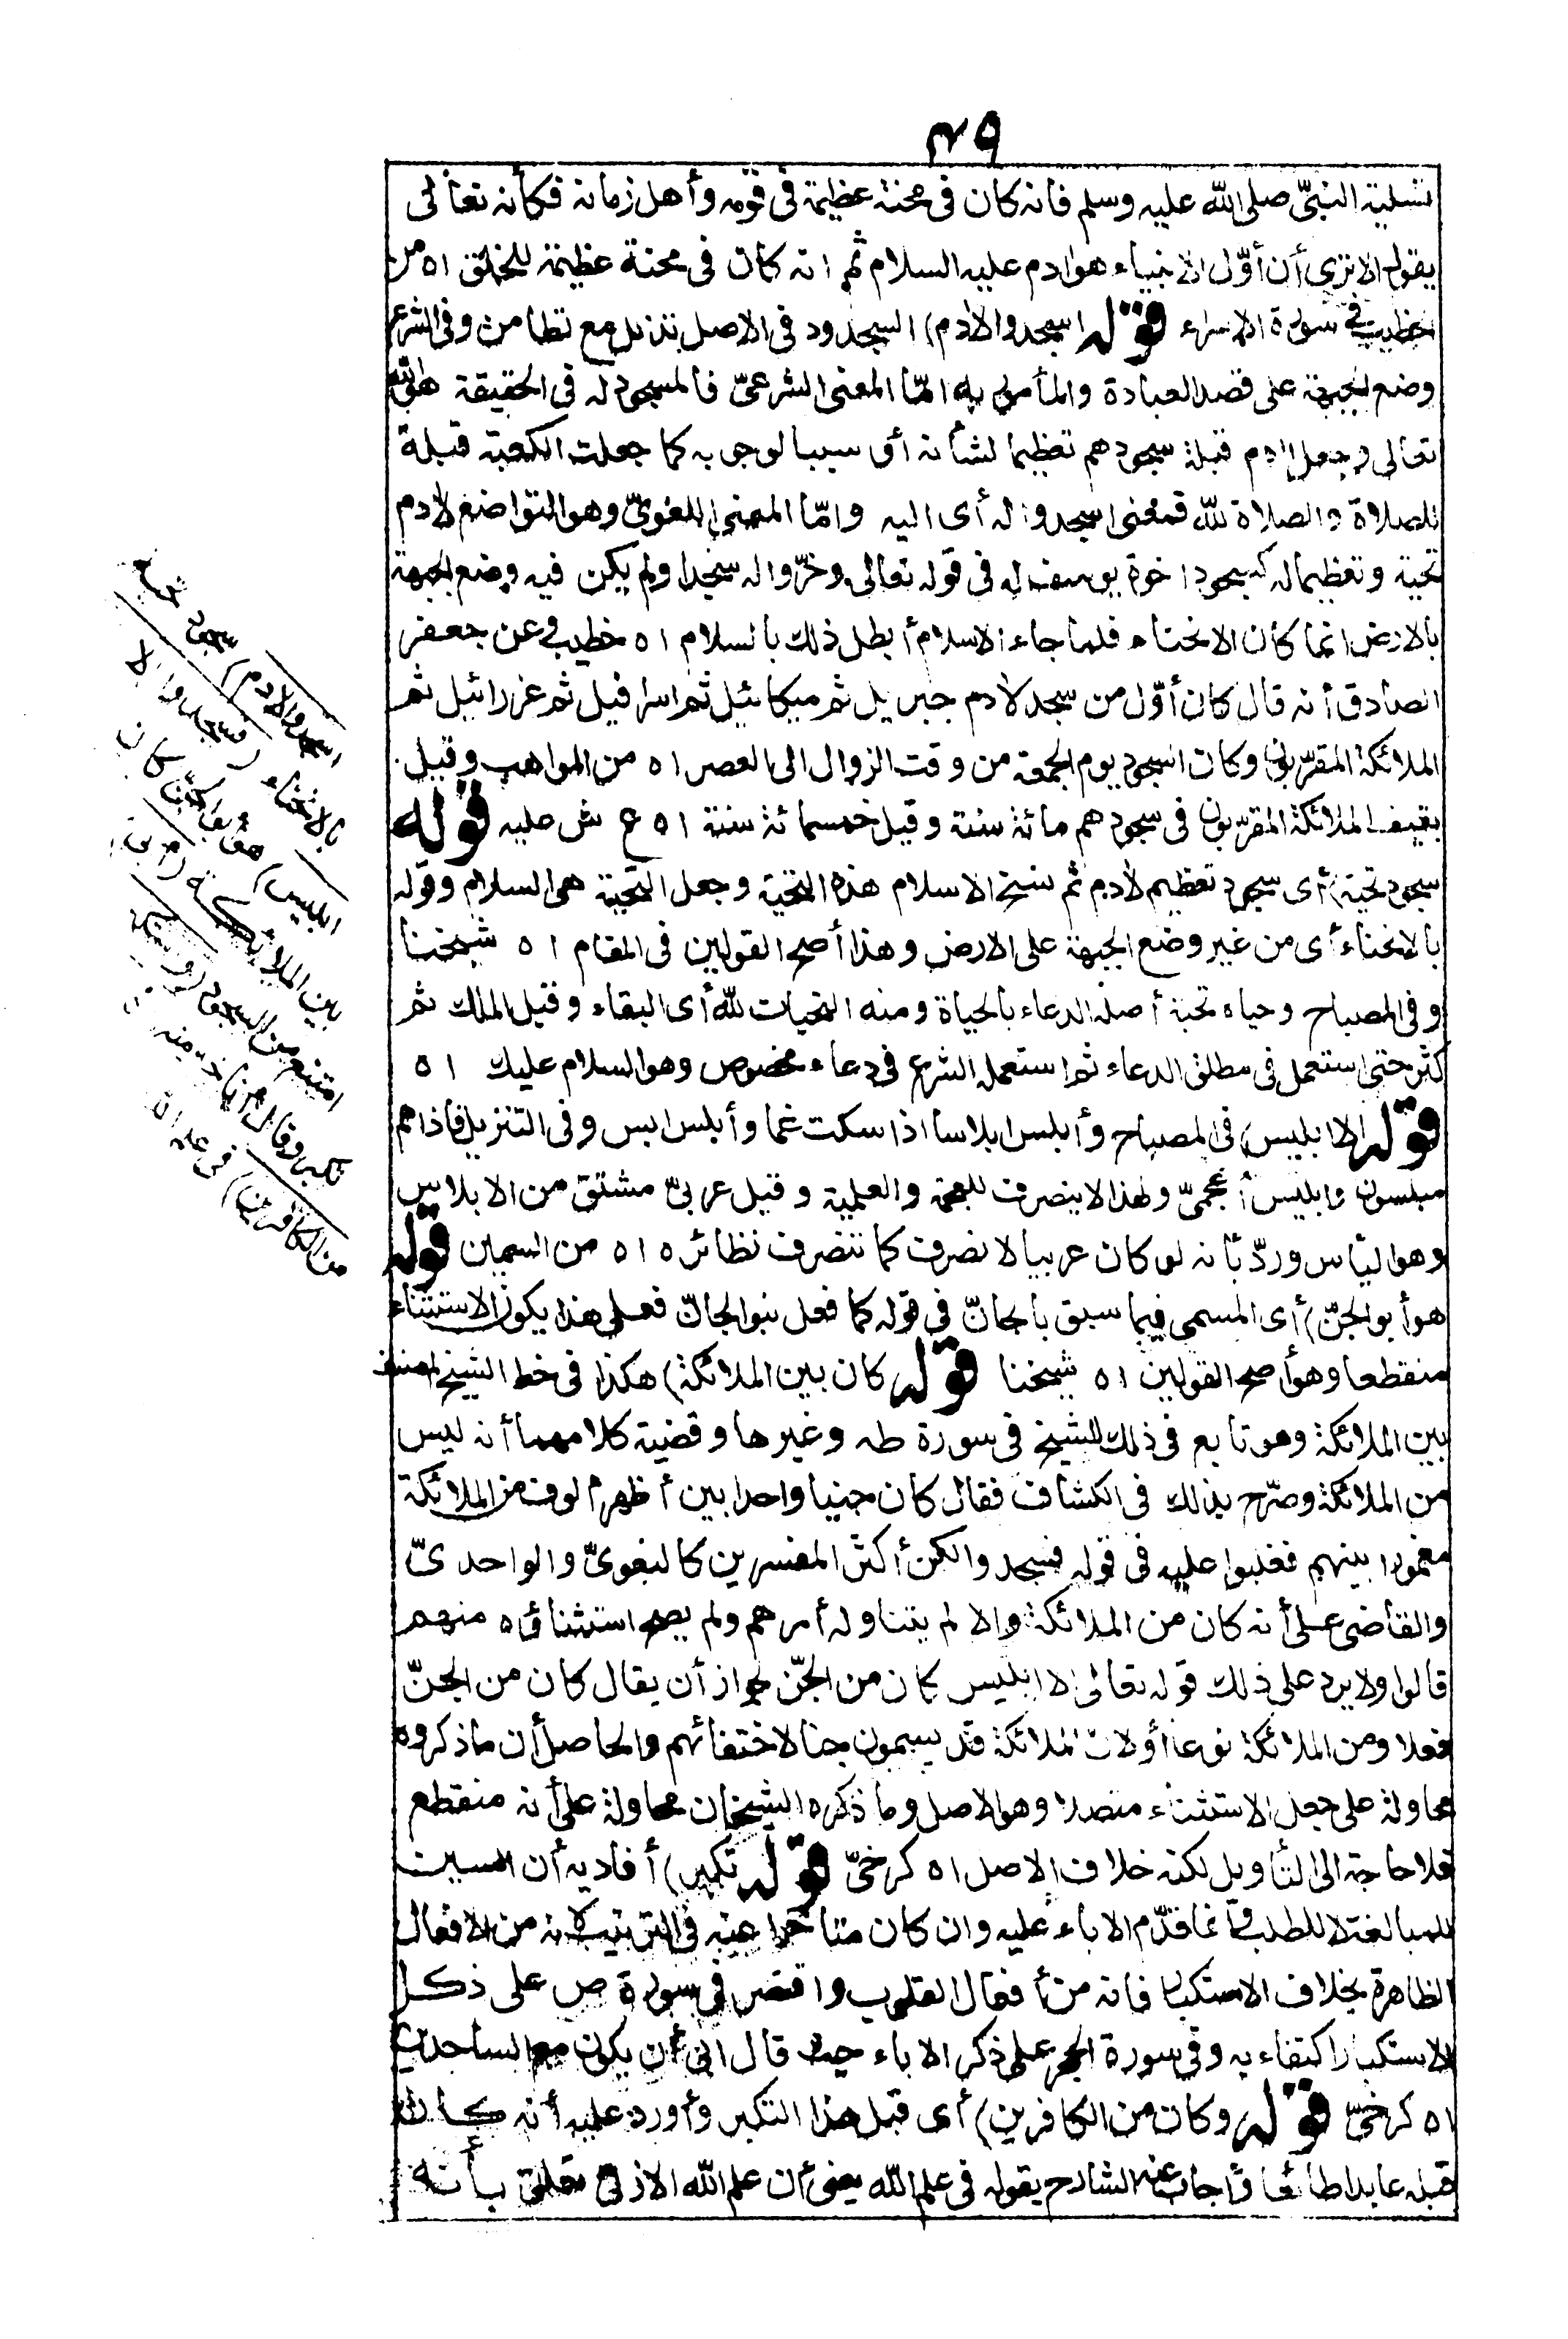 ٤٩
تسلية النبيّ صلى الله عليه وسلم فانه كان فى محنة عظيمة فى قومه وأهل زمانه فكأنه تعالى
يقول ألا ترى أن أوّل الانبياء هو ادم عليه السلام ثم انه كان فى محنة عظيمة للخلق اه من
خطيب فى سورة الاسراء قوله اسجدوا لادم) السجود فى الاصل تذلل مع تطامن وفى الشرع
وضع الجبهة على قصد العبادة والمأمور به امّا المعنى الشرعىّ فالمسجود له فى الحقيقة هو الله
تعالى وجعل ادم قبلة سجودهم تعظيما لشأنه أو سببا لوجوبه كما جعلت الكعبة قبلة
للصلاة والصلاة لله فمعنى اسجدوا له أى اليه وامّا المعنى اللغوىّ وهو التواضع لادم
تحية وتعظيما له كسجود اخوة يوسف له فى قوله تعالى وخرّوا له سجدا ولم يكن فيه وضع الجبهة
بالارض انما كان الانحناء فلما جاء الاسلام أبطل ذلك بالسلام اه خطيب وعن جعفر
الصادق أنه قال كان أوّل من سجد لادم جبريل ثم ميكائيل ثم اسرافيل ثم عزرائيل ثم
الملائكة المقرّبون وكان السجود يوم الجمعة من وقت الزوال الى العصر اه من المواهب وقيل
بقيت الملائكة المقرّبون فى سجودهم مائة سنة وقيل خمسمائة سنة اه ع ش عليه قوله
سجود تحية) أى سجود تعظيم لادم ثم نسخ الاسلام هذه التحية وجعل التحية هى السلام وقوله
بالانحناء أى من غير وضع الجبهة على الارض وهذا أصح القولين فى المقام اه شيخنا
وفى المصباح وحياه تحية أصله الدعاء بالحياة ومنه التحيات لله أى البقاء وقيل الملك ثم
كثر حتى استعمل فى مطلق الدعاء ثم استعمله الشرع فى دعاء مخصوص وهو السلام عليك اه
قوله الا ابليس) فى المصباح وأبلس ابلاسا اذا سكت غما وأبلس ايس وفى التنزيل فاذا هم
مبلسون وابليس أعجمىّ ولهذا لا ينصرف للعجمة والعلمية وقيل عربىّ مشتق من الابلاس
وهو الياس وردّ بأنه لو كان عربيا لانصرف كما تنصرف نظائره اه من السمين قوله
هو أبو الجنّ) أى المسمى فيما سبق بالجانّ فى قوله كما فعل بنو الجانّ فعلى هذا يكون الاستثناء
منقطعا وهو أصح القولين اه شيخنا قوله كان بين الملائكة) هكذا فى خط الشيخ المصنف
بين الملائكة وهو تابع فى ذلك للشيخ فى سورة طه وغيرها وقضية كلامهما أنه ليس
من الملائكة وصرّح بذلك فى الكشاف فقال كان جنيا واحدا بين أظهر ألوف من الملائكة
مغمورا بينهم فغلبوا عليه فى قوله فسجدوا لكن أكثر المفسرين كالبغوىّ والواحدىّ
والقاضى على أنه كان من الملائكة والا لم يتناوله أمرهم ولم يصح استثناؤه منهم
قالوا ولا يرد على ذلك قوله تعالى الا ابليس كان من الجنّ لجواز أن يقال كان من الجنّ
فعلا ومن الملائكة نوعا أو لان الملائكة قد يسمون جنا لاختفائهم والحاصل أن ما ذكروه
محاولة على جعل الاستثناء متصلا وهو الاصل وما ذكره الشيخان محاولة على أنه منقطع
فلا حاجة الى التأويل لكنه خلاف الاصل اه كرخىّ قوله تكبر) أفاد به أن السين
للمبالغة لا للطلب وانما قدّم الاباء عليه وان كان متأخرا عنه فى الترتيب لانه من الافعال
الظاهرة بخلاف الاستكبار فانه من أفعال القلوب واقتصر فى سورة ص على ذكر
الاستكبار اكتفاء به وفى سورة الحجر على ذكر الاباء حيث قال أبى أن يكون مع الساجدين
اه كرخىّ قوله وكان من الكافرين) أى قبل هذا التكبر وأورد عليه أنه كان
قبله عابدا طائعا وأجاب عنه الشارح بقوله فى علم الله يعنى أن علم الله الازلىّ تعلق بأنه
اسجدوا لادم) سجود تحية
بالانحناء (فسجدوا الا
ابليس) هو أبو الجنّ كان
بين الملائكة (أبى)
امتنع من السجود (واستكبر)
تكبر وقال أنا خير منه
من الكافرين) فى علم الله